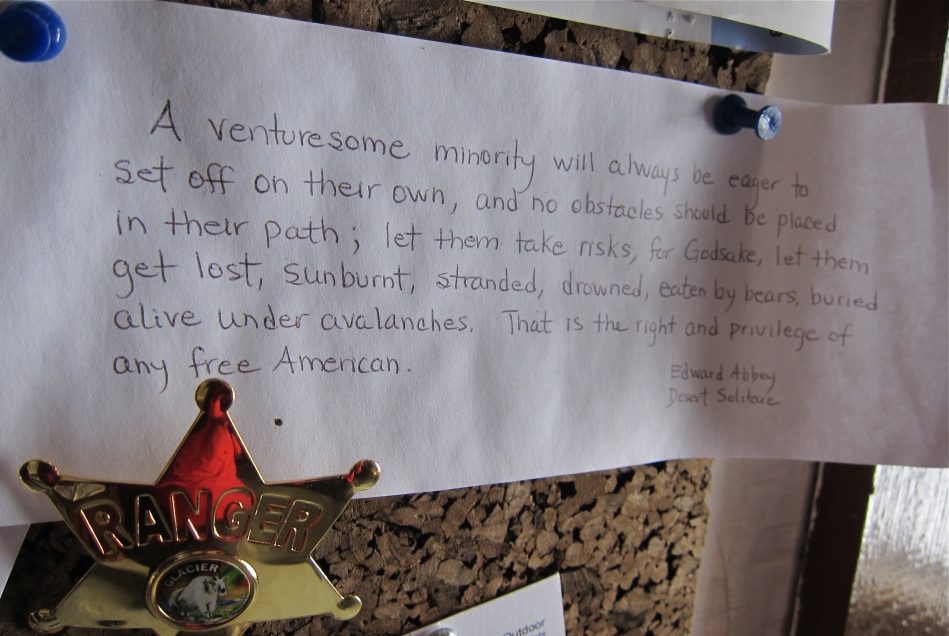 A venturesome minority will always be eager to
set off on their own, and no obstacles should be placed
in their path; let them take risks, for Godsake, let them
get lost, sunburnt, stranded, drowned, eaten by bears, buried
alive under avalanches. That is the right and privilege of
any free American.
Edward Abbey
Desert Solitaire
RANGER
GLACIER
Outdoor